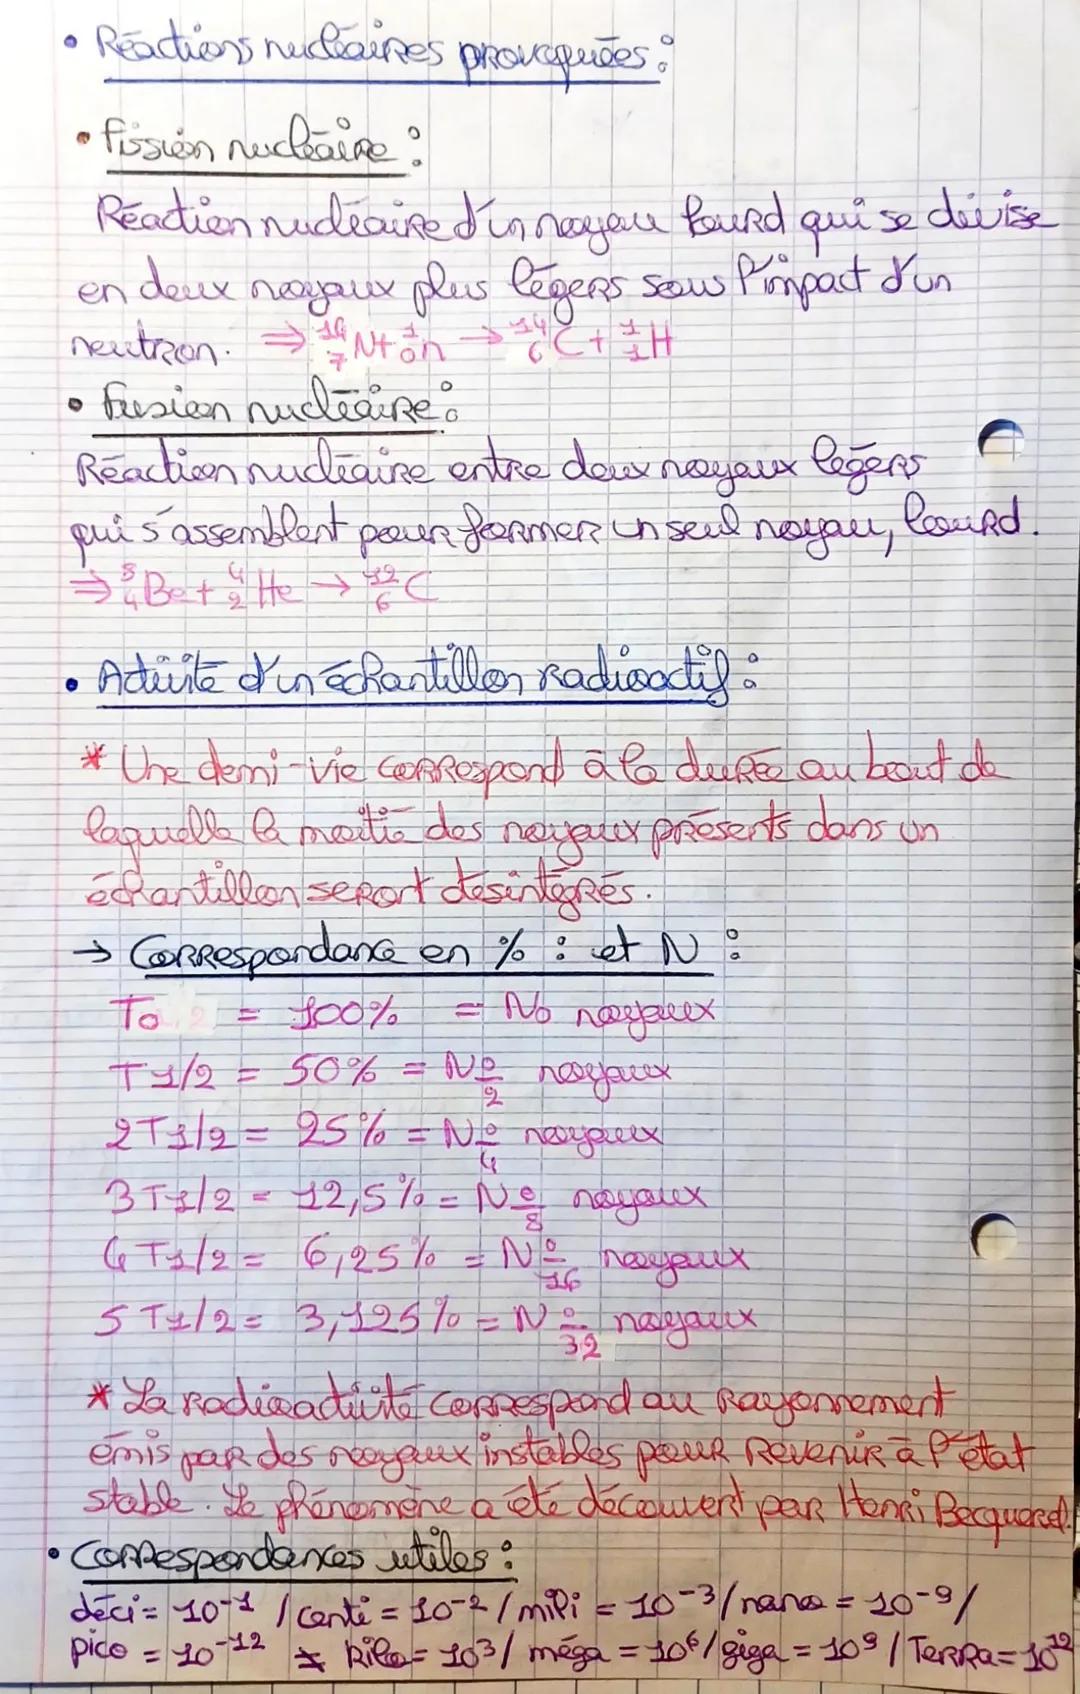 • Réactions nucléaires provoquées :
• Fission nucléaire :
Réaction nucléaire d'un noyau lourd qui se divise
en deux noyaux plus légers sous l'impact d'un
neutron. ⇒ ¹⁴₇N + ¹₀n → ¹⁴₆C + ¹₁H
• Fusion nucléaire :
Réaction nucléaire entre deux noyaux légers
qui s'assemblent pour former un seul noyau, lourd.
⇒ ⁸₄Be + ⁴₂He → ¹²₆C
• Activité d'un échantillon radioactif :
* Une demi-vie correspond à la durée au bout de
laquelle la moitié des noyaux présents dans un
échantillon seront désintégrés.
→ Correspondance en % : et N :
T0 = 100% = N0 noyaux
T1/2 = 50% = N0/2 noyaux
2T1/2 = 25% = N0/4 noyaux
3T1/2 = 12,5% = N0/8 noyaux
4T1/2 = 6,25% = N0/16 noyaux
5T1/2 = 3,125% = N0/32 noyaux
* La radioactivité correspond au rayonnement
émis par des noyaux instables pour revenir à l'état
stable. Le phénomène a été découvert par Henri Becquerel.
• Correspondances utiles :
déci = 10⁻¹ / centi = 10⁻² / mili = 10⁻³ / nano = 10⁻⁹ /
pico = 10⁻¹² * kilo = 10³ / méga = 10⁶ / giga = 10⁹ / Terra = 10¹²